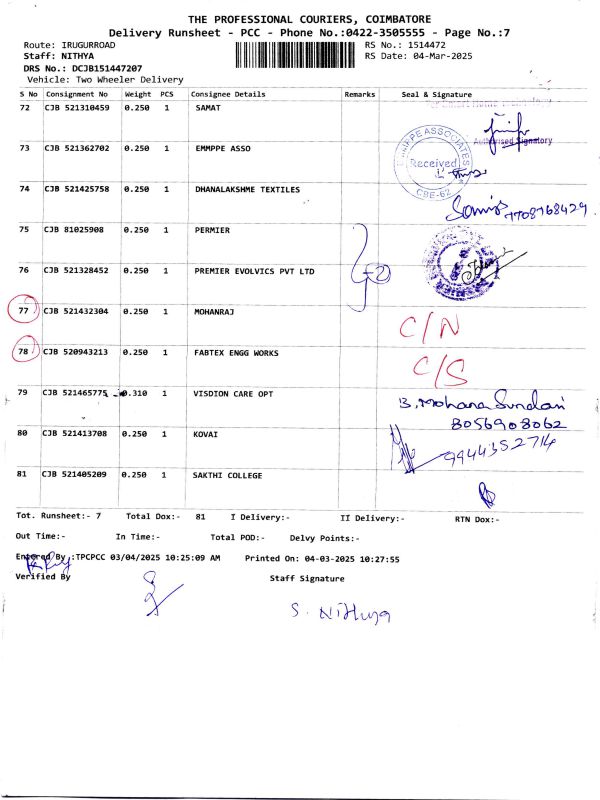 THE PROFESSIONAL COURIERS, COIMBATORE
Delivery Runsheet - PCC - Phone No.:0422-3505555 - Page No.:7
Route: IRUGURROAD RS No.: 1514472
Staff: NITHYA RS Date: 04-Mar-2025
DRS No.: DCJB151447207
Vehicle: Two Wheeler Delivery
S No Consignment No Weight PCS Consignee Details Remarks Seal & Signature
72 CJB 521310459 0.250 1 SAMAT
Authorised Signatory
73 CJB 521362702 0.250 1 EMMPPE ASSO
EMMPPE ASSOCIATES
Received
CBE-62
74 CJB 521425758 0.250 1 DHANALAKSHME TEXTILES
7708768429
75 CJB 81025908 0.250 1 PERMIER
76 CJB 521328452 0.250 1 PREMIER EVOLVICS PVT LTD 2
77 CJB 521432304 0.250 1 MOHANRAJ C/N
78 CJB 520943213 0.250 1 FABTEX ENGG WORKS C/S
79 CJB 521465775 0.310 1 VISDION CARE OPT B. Mohana Sundari
8056908062
80 CJB 521413708 0.250 1 KOVAI 9944352714
81 CJB 521405209 0.250 1 SAKTHI COLLEGE
Tot. Runsheet:- 7 Total Dox:- 81 I Delivery:- II Delivery:- RTN Dox:-
Out Time:- In Time:- Total POD:- Delvy Points:-
Entered By :TPCPCC 03/04/2025 10:25:09 AM Printed On: 04-03-2025 10:27:55
Verified By Staff Signature
S. Nithya